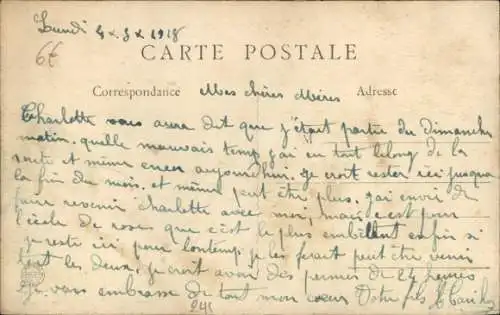 Lundi 4 x 3 x 1918
6€
CARTE POSTALE
Correspondance Mes chères Mères Adresse
Charlotte vous aura dit que j'étais partie du Dimanche
matin. quelle mauvais temp j'ai eu tout lelong de la
route et même encor aujourd'hui. Je croit rester ici jusqua
la fin du mois. et même peut être plus. j'ai envie de
faire revenir Charlotte avec moi, mais c'est pour
l'école de rose que c'est le plus embêtent enfin si
je reste ici pour lontemp je les ferait peut être venir
tout les deux. je croit avoir des permis de 24 heures
Je vous embrasse de tout mon cœur Votre fils